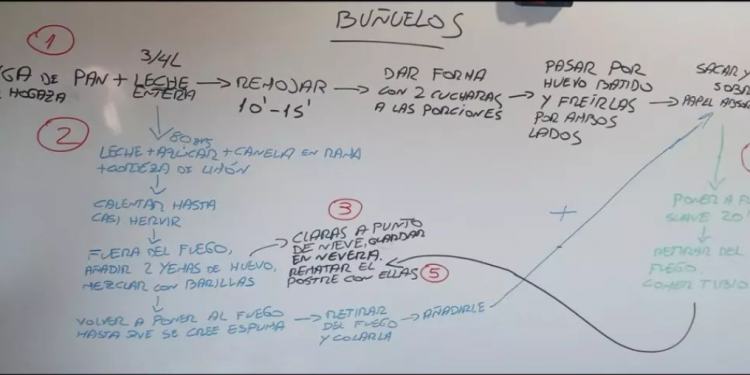 BUÑUELOS
1
3/4L
GA DE PAN + LECHE
HOGAZA
ENTERA
REMOJAR
10'-15'
DAR FORMA
CON 2 CUCHARAS
A LAS PORCIONES
PASAR POR
HUEVO BATIDO
Y FREÍRLAS
POR AMBOS
LADOS
SACAR Y
SOBR
PAPEL ABSOR
2
80grs
LECHE + AZÚCAR + CANELA EN RAMA
+ CORTEZA DE LIMÓN
CALENTAR HASTA
CASI HERVIR
FUERA DEL FUEGO,
AÑADIR 2 YEMAS DE HUEVO,
MEZCLAR CON BARILLAS
VOLVER A PONER AL FUEGO
HASTA QUE SE CREE ESPUMA
RETIRAR
DEL FUEGO
Y COLARLA
AÑADIRLE
+
3
CLARAS A PUNTO
DE NIEVE, GUARDAR
EN NEVERA.
REMATAR EL
POSTRE CON ELLAS
5
PONER A F
SUAVE 20
RETIRAR DEL
FUEGO.
COMER TIBIO